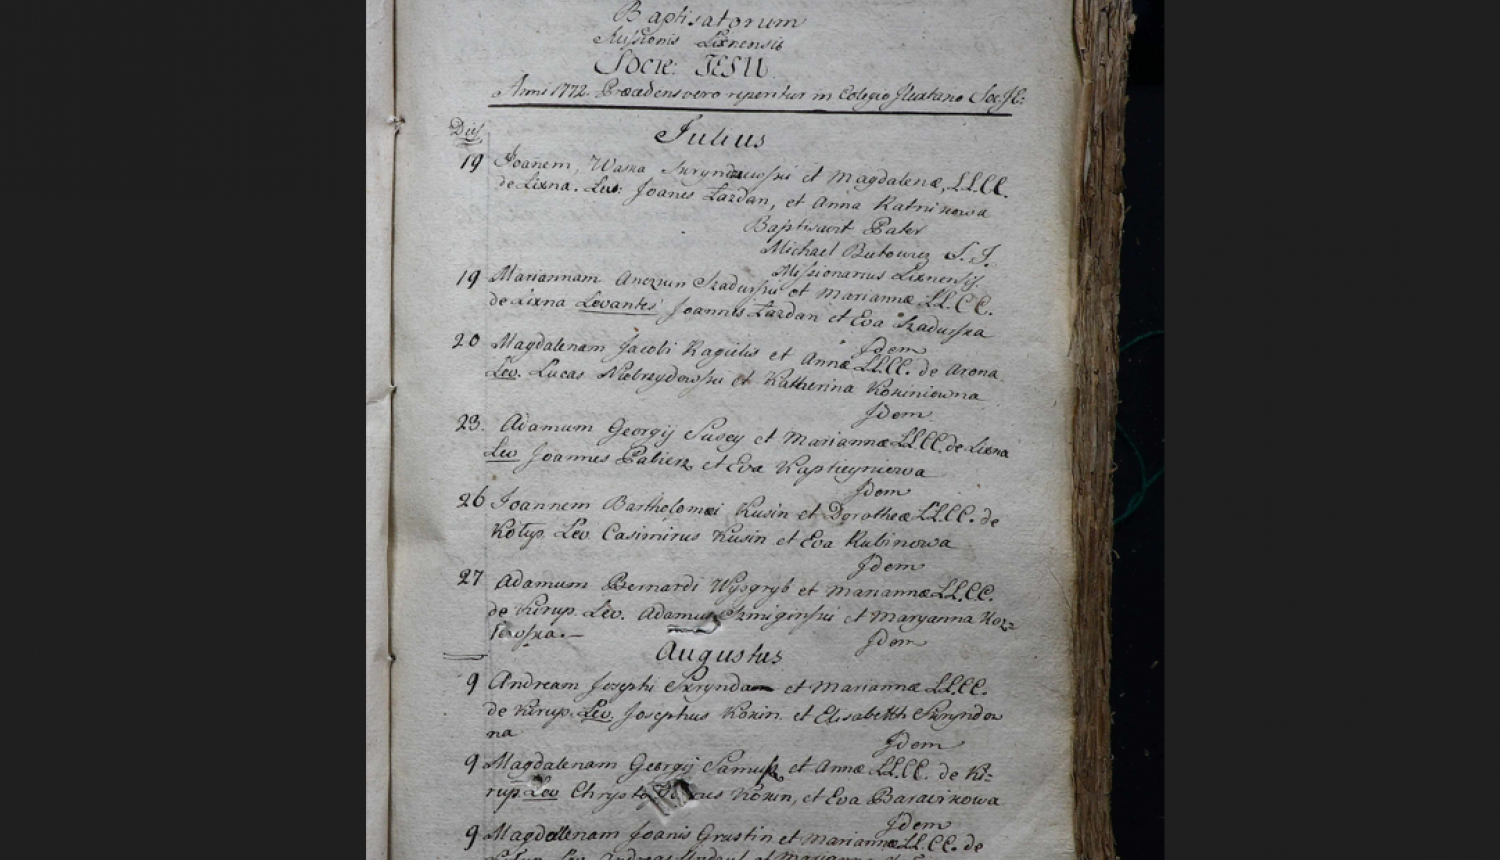 Baptisatorum
Missionis Lixnensis
Socie: IESU
Anni 1772. Præcedens vero reperitur in Colegio Ilextano Soc. JE:
Dies
Julius
19 Joañem, Waska Skryndzewski et Magdalenæ, LL.CC.
de Lixna. Lev: Joanes Łazdan, et Anna Ratnikowa
Baptisavit Pater
Michael Butowicz S.J.
Missionarius Lixnensis.
19 Mariannam Szadurski et Mariannæ LL.CC.
de Lixna Levantes Joannes Łazdan et Eva Szadurska
Idem
20 Magdalenam Jacobi Ragielis et Annæ LL.CC. de Arona
Lev. Lucas Niebrzydowski et Katherina Kokiniowna
Idem
23. Adamum Georgij Susey et Mariannæ LL.CC. de Lixna
Lev Joannes et Eva
Idem
26 Joannem Bartholomæi Kusin et Dorotheæ LL.CC. de
Kołup. Lev. Casimirus Kusin et Eva Rubinowa
Idem
27 Adamum Bernardi Wysgryb et Mariannæ LL.CC.
de Kirup. Lev. Adamus Szmiginski et Maryanna Koz-
łowska.—
Idem
Augustus
9 Andream Josephi Skrynda et Mariannæ LL.CC.
de Kirup. Lev. Josephus Kokin. et Elisabeth Skryndow
na
Idem
9 Magdalenam Georgij et Annæ LL.CC. de Ki-
rup Lev Kokin, et Eva Barawikowa
Idem
9 Magdalenam Joanis Grastin et Mariannæ LL.CC. de
Lev. Andreas et Marianna